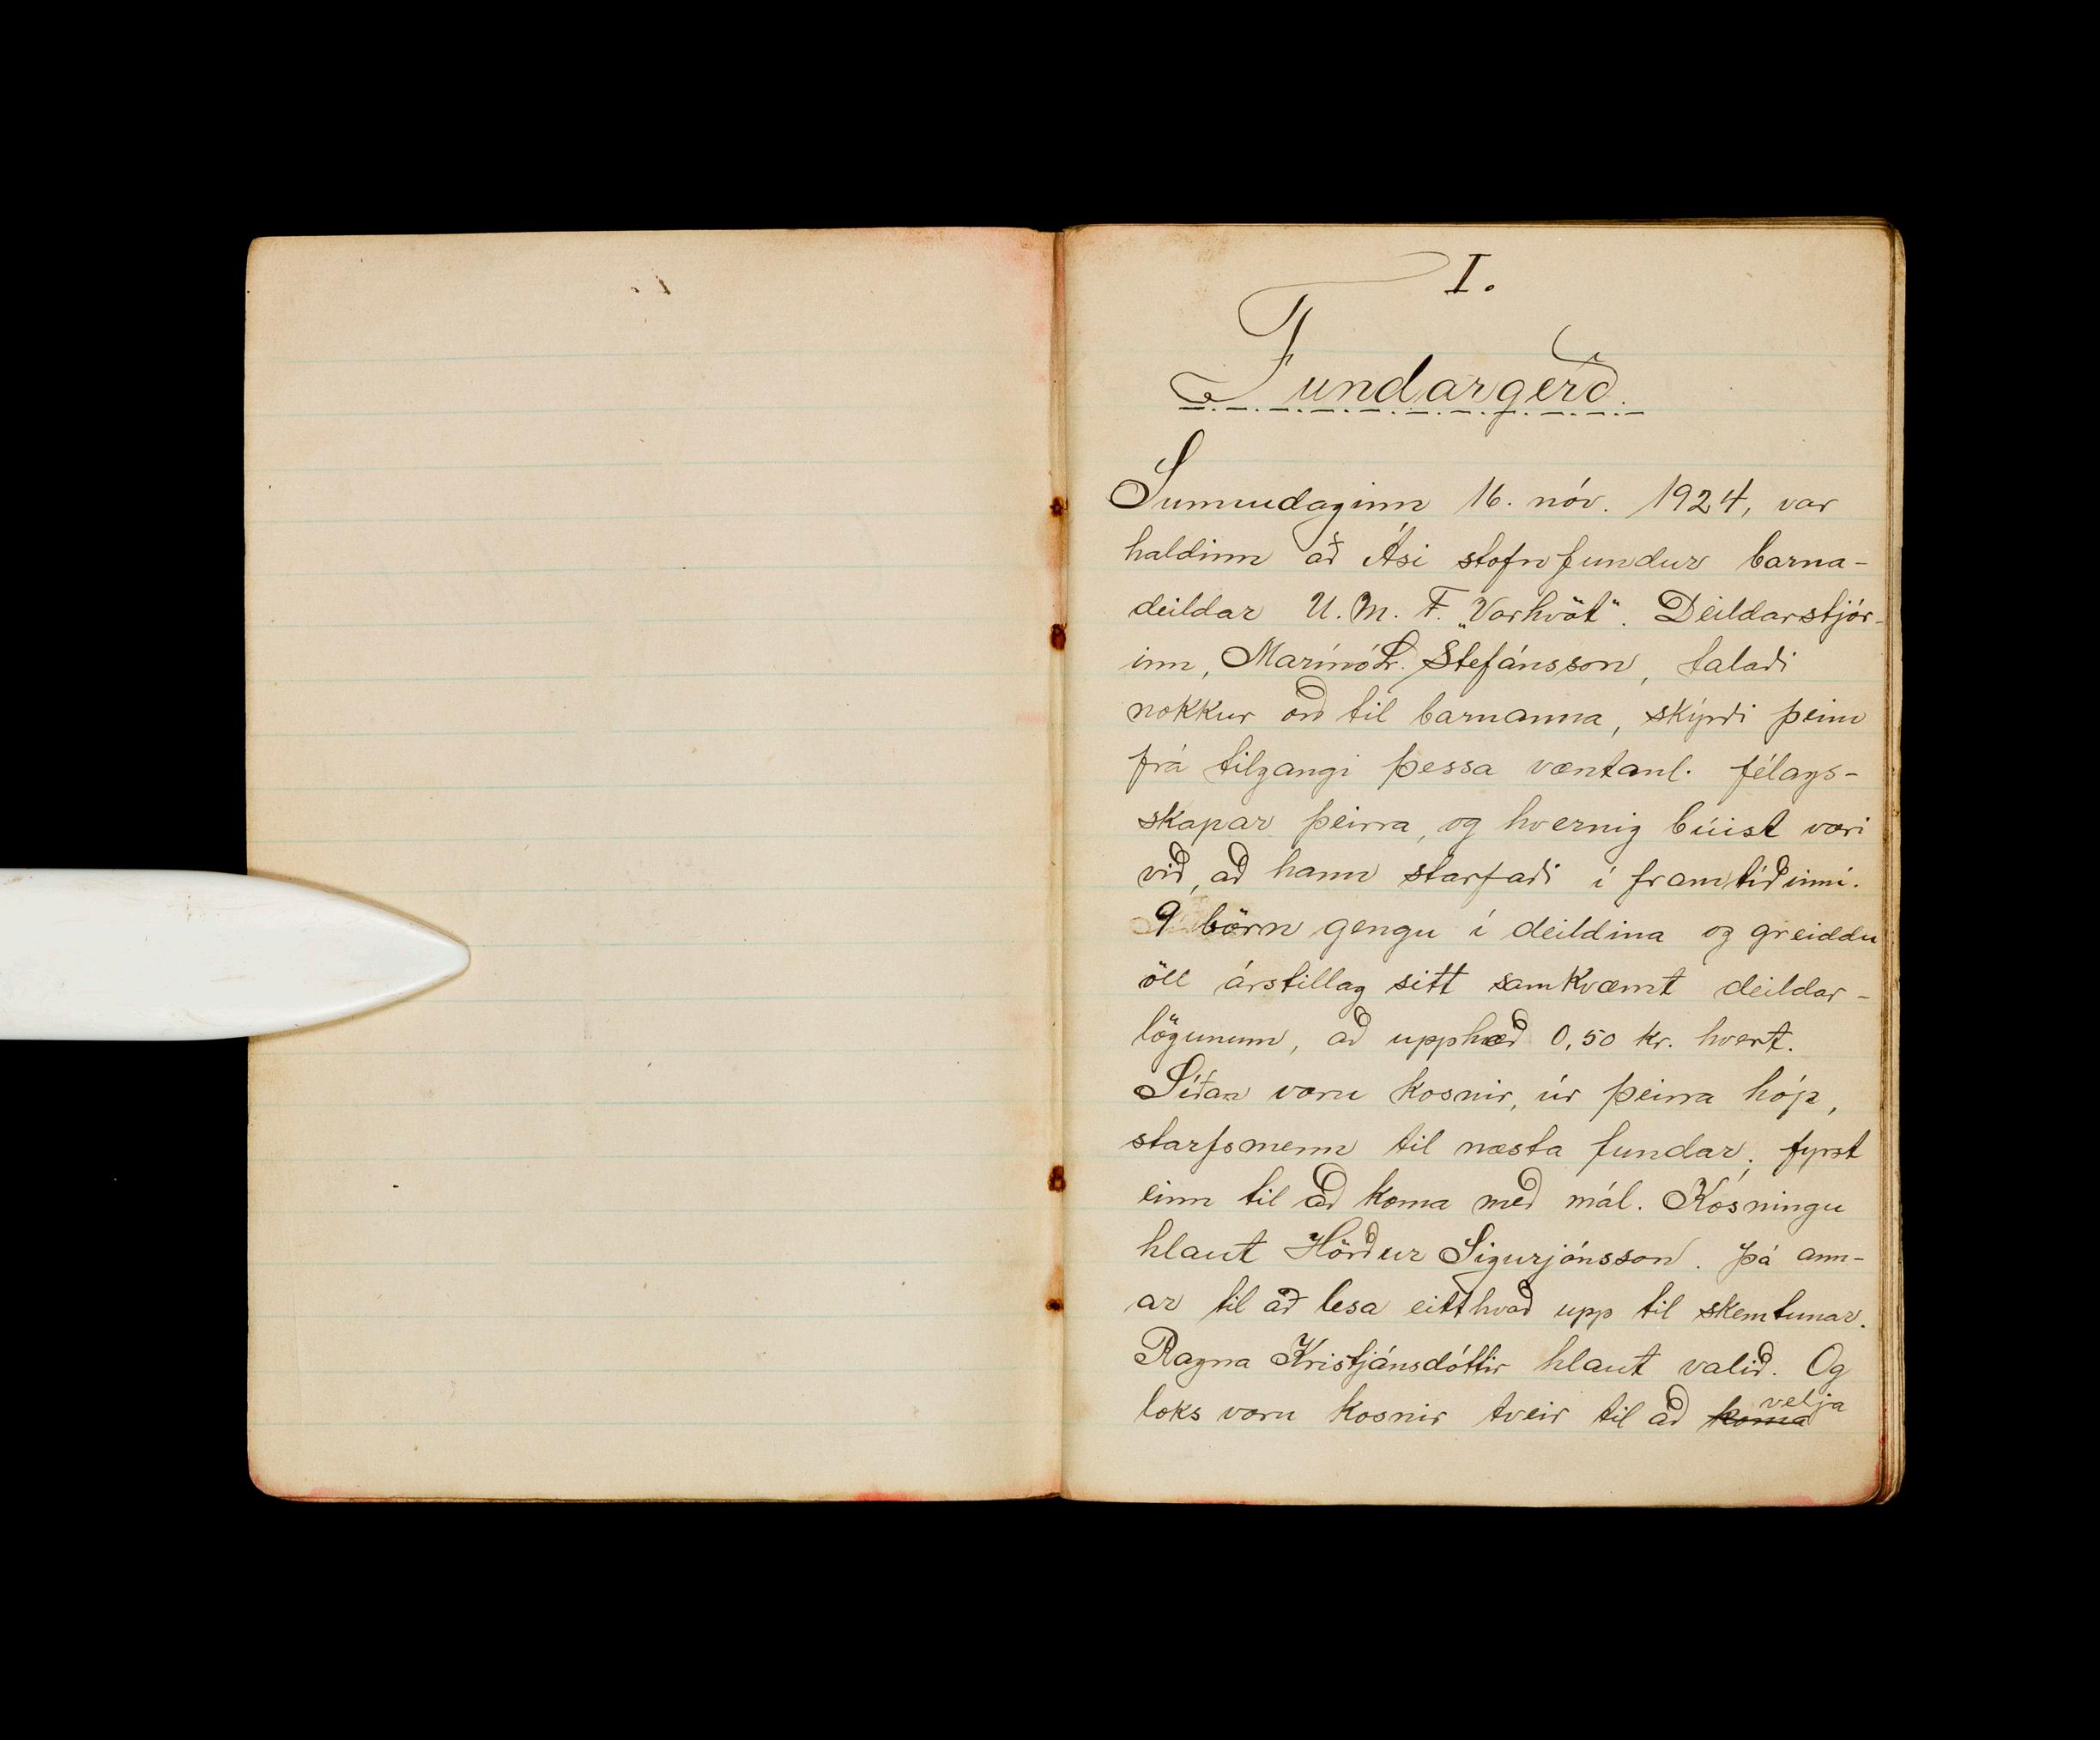 I.
Fundargerð.
Sunnudaginn 16. nóv. 1924, var
haldinn að Ási stofnfundur barna-
deildar U. M. F. „Vorhvöt". Deildarstjór-
inn, Marínó L. Stefánsson, talaði
nokkur orð til barnanna, skýrði þeim
frá tilgangi þessa væntanl. félags-
skapar þeirra, og hvernig búist væri
við, að hann starfaði í framtíðinni.
9 börn gengu í deildina og greiddu
öll árstillag sitt samkvæmt deildar-
lögunum, að upphæð 0,50 kr. hvert.
Síðan voru kosnir, úr þeirra hóp,
starfsmenn til næsta fundar; fyrst
einn til að koma með mál. Kosningu
hlaut Hörður Sigurjónsson. Þá ann-
ar til að lesa eitthvað upp til skemtunar.
Ragna Kristjánsdóttir hlaut valið. Og
loks voru kosnir tveir til að koma velja